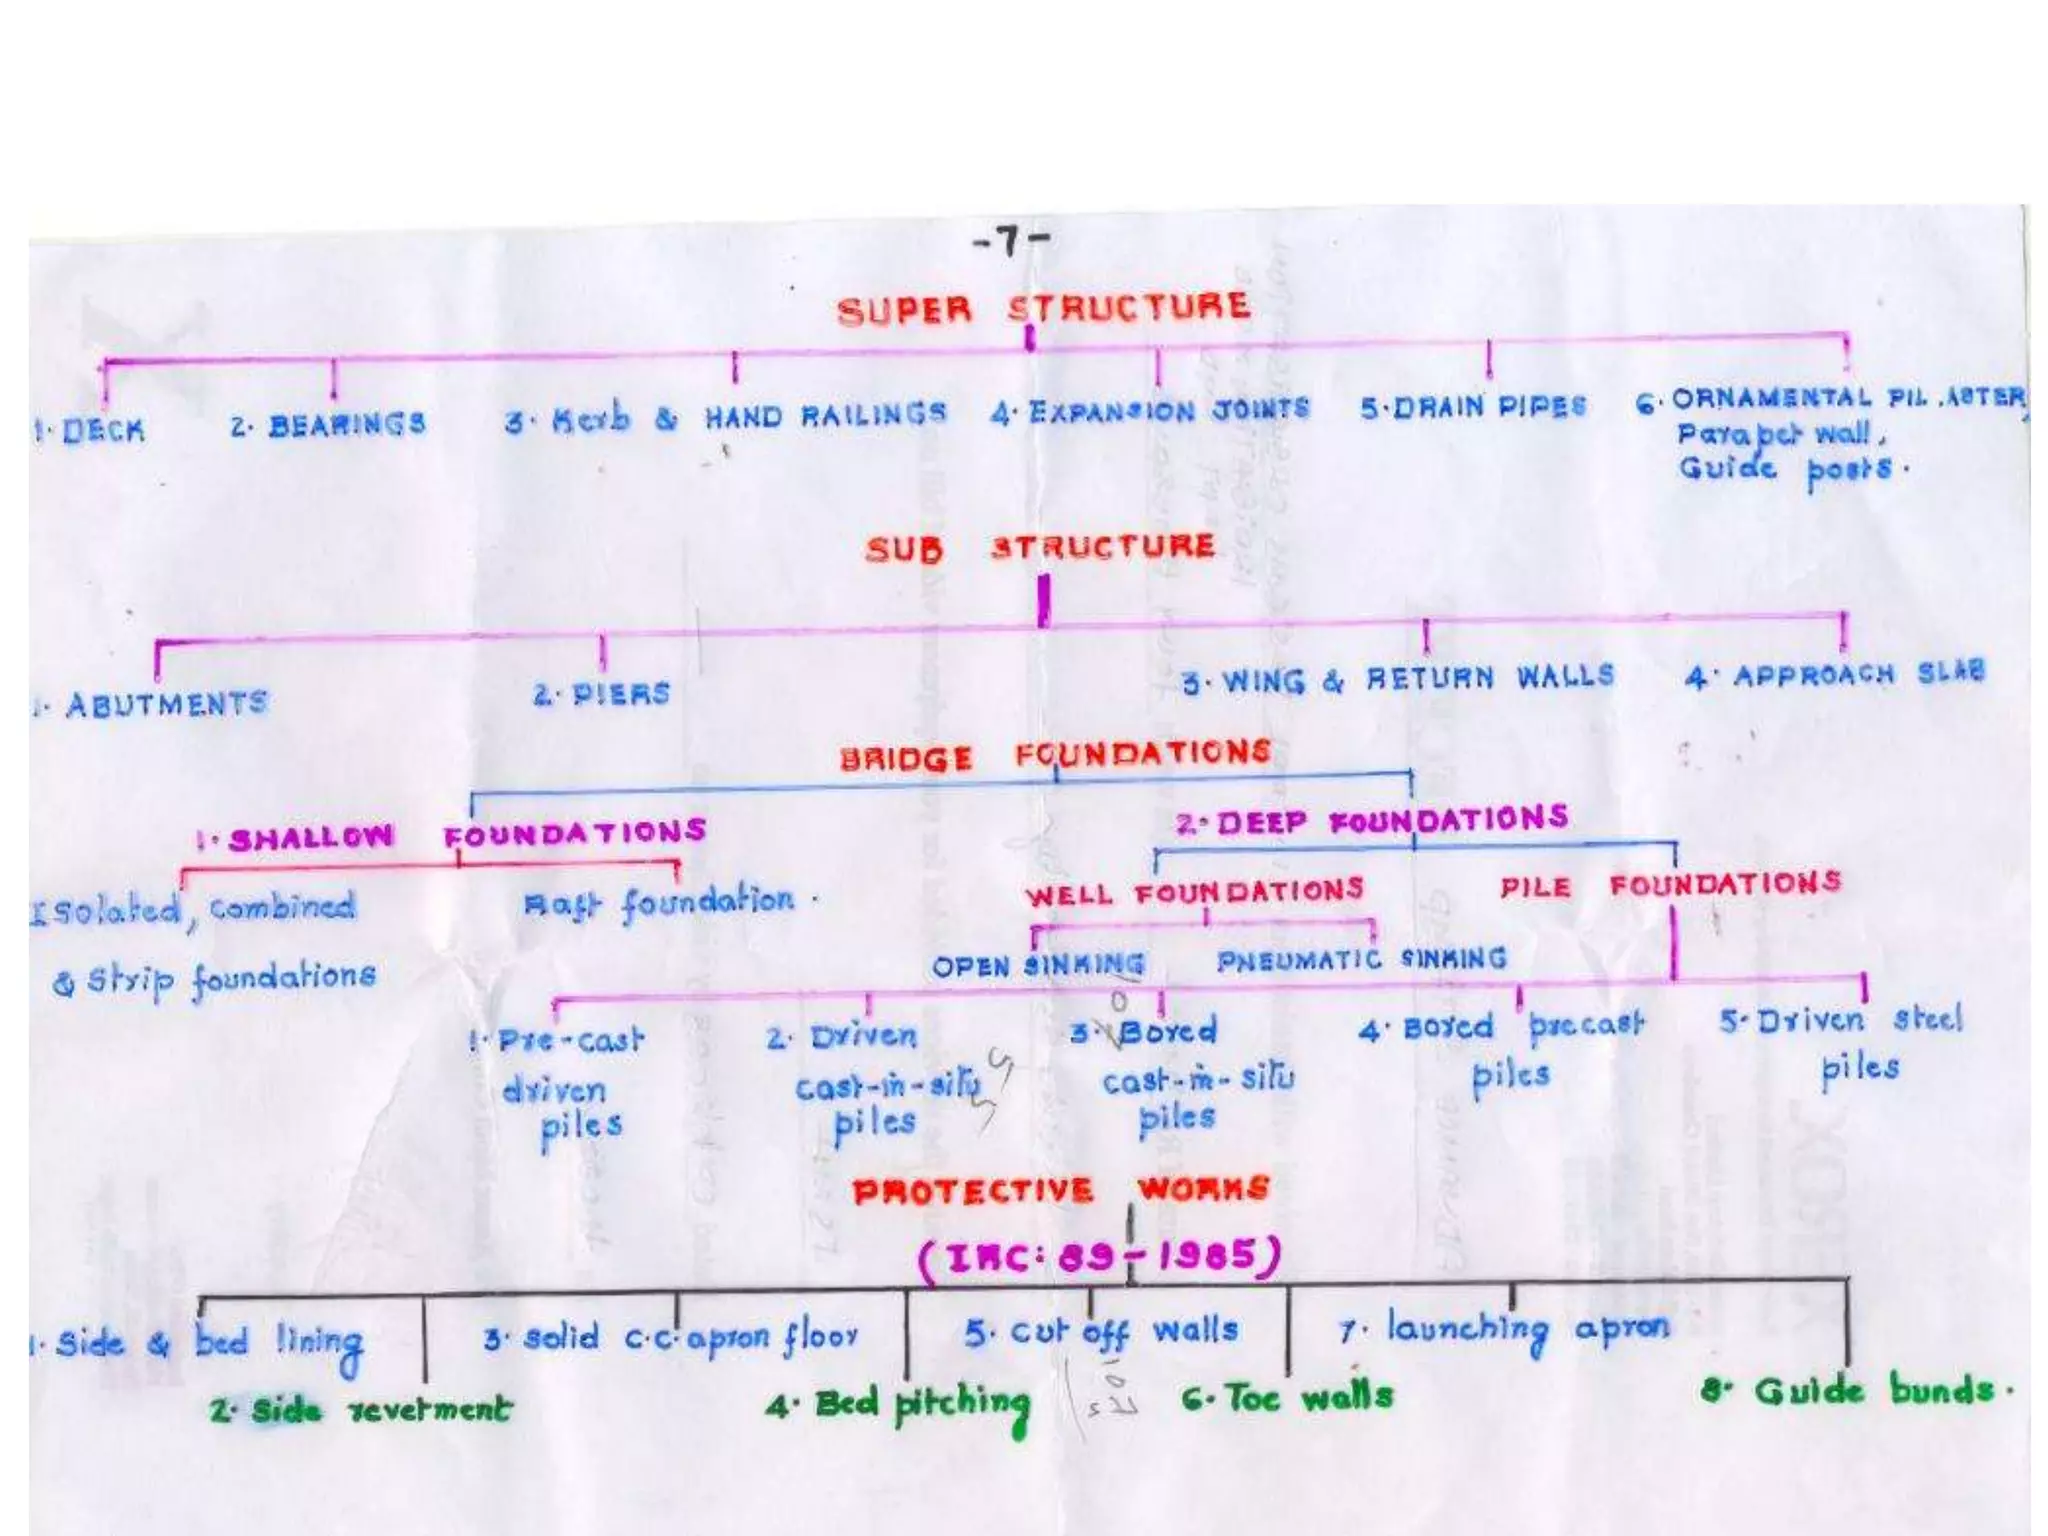 -7-
SUPER STRUCTURE
1. DECK 2. BEARINGS 3. Kerb & HAND RAILINGS 4. EXPANSION JOINTS 5. DRAIN PIPES 6. ORNAMENTAL PILASTER,
Parapet wall,
Guide posts.
SUB STRUCTURE
1. ABUTMENTS 2. PIERS 3. WING & RETURN WALLS 4. APPROACH SLAB
BRIDGE FOUNDATIONS
1. SHALLOW FOUNDATIONS 2. DEEP FOUNDATIONS
Isolated, combined Raft foundation. WELL FOUNDATIONS PILE FOUNDATIONS
& Strip foundations OPEN SINKING PNEUMATIC SINKING
1. Pre-cast 2. Driven 3. Bored 4. Bored precast 5. Driven steel
driven cast-in-situ cast-in-situ piles piles
piles piles piles
PROTECTIVE WORKS
(IRC: 89-1985)
1. Side & bed lining 3. Solid c.c. apron floor 5. cut off walls 7. launching apron
2. Side revetment 4. Bed pitching 6. Toe walls 8. Guide bunds.